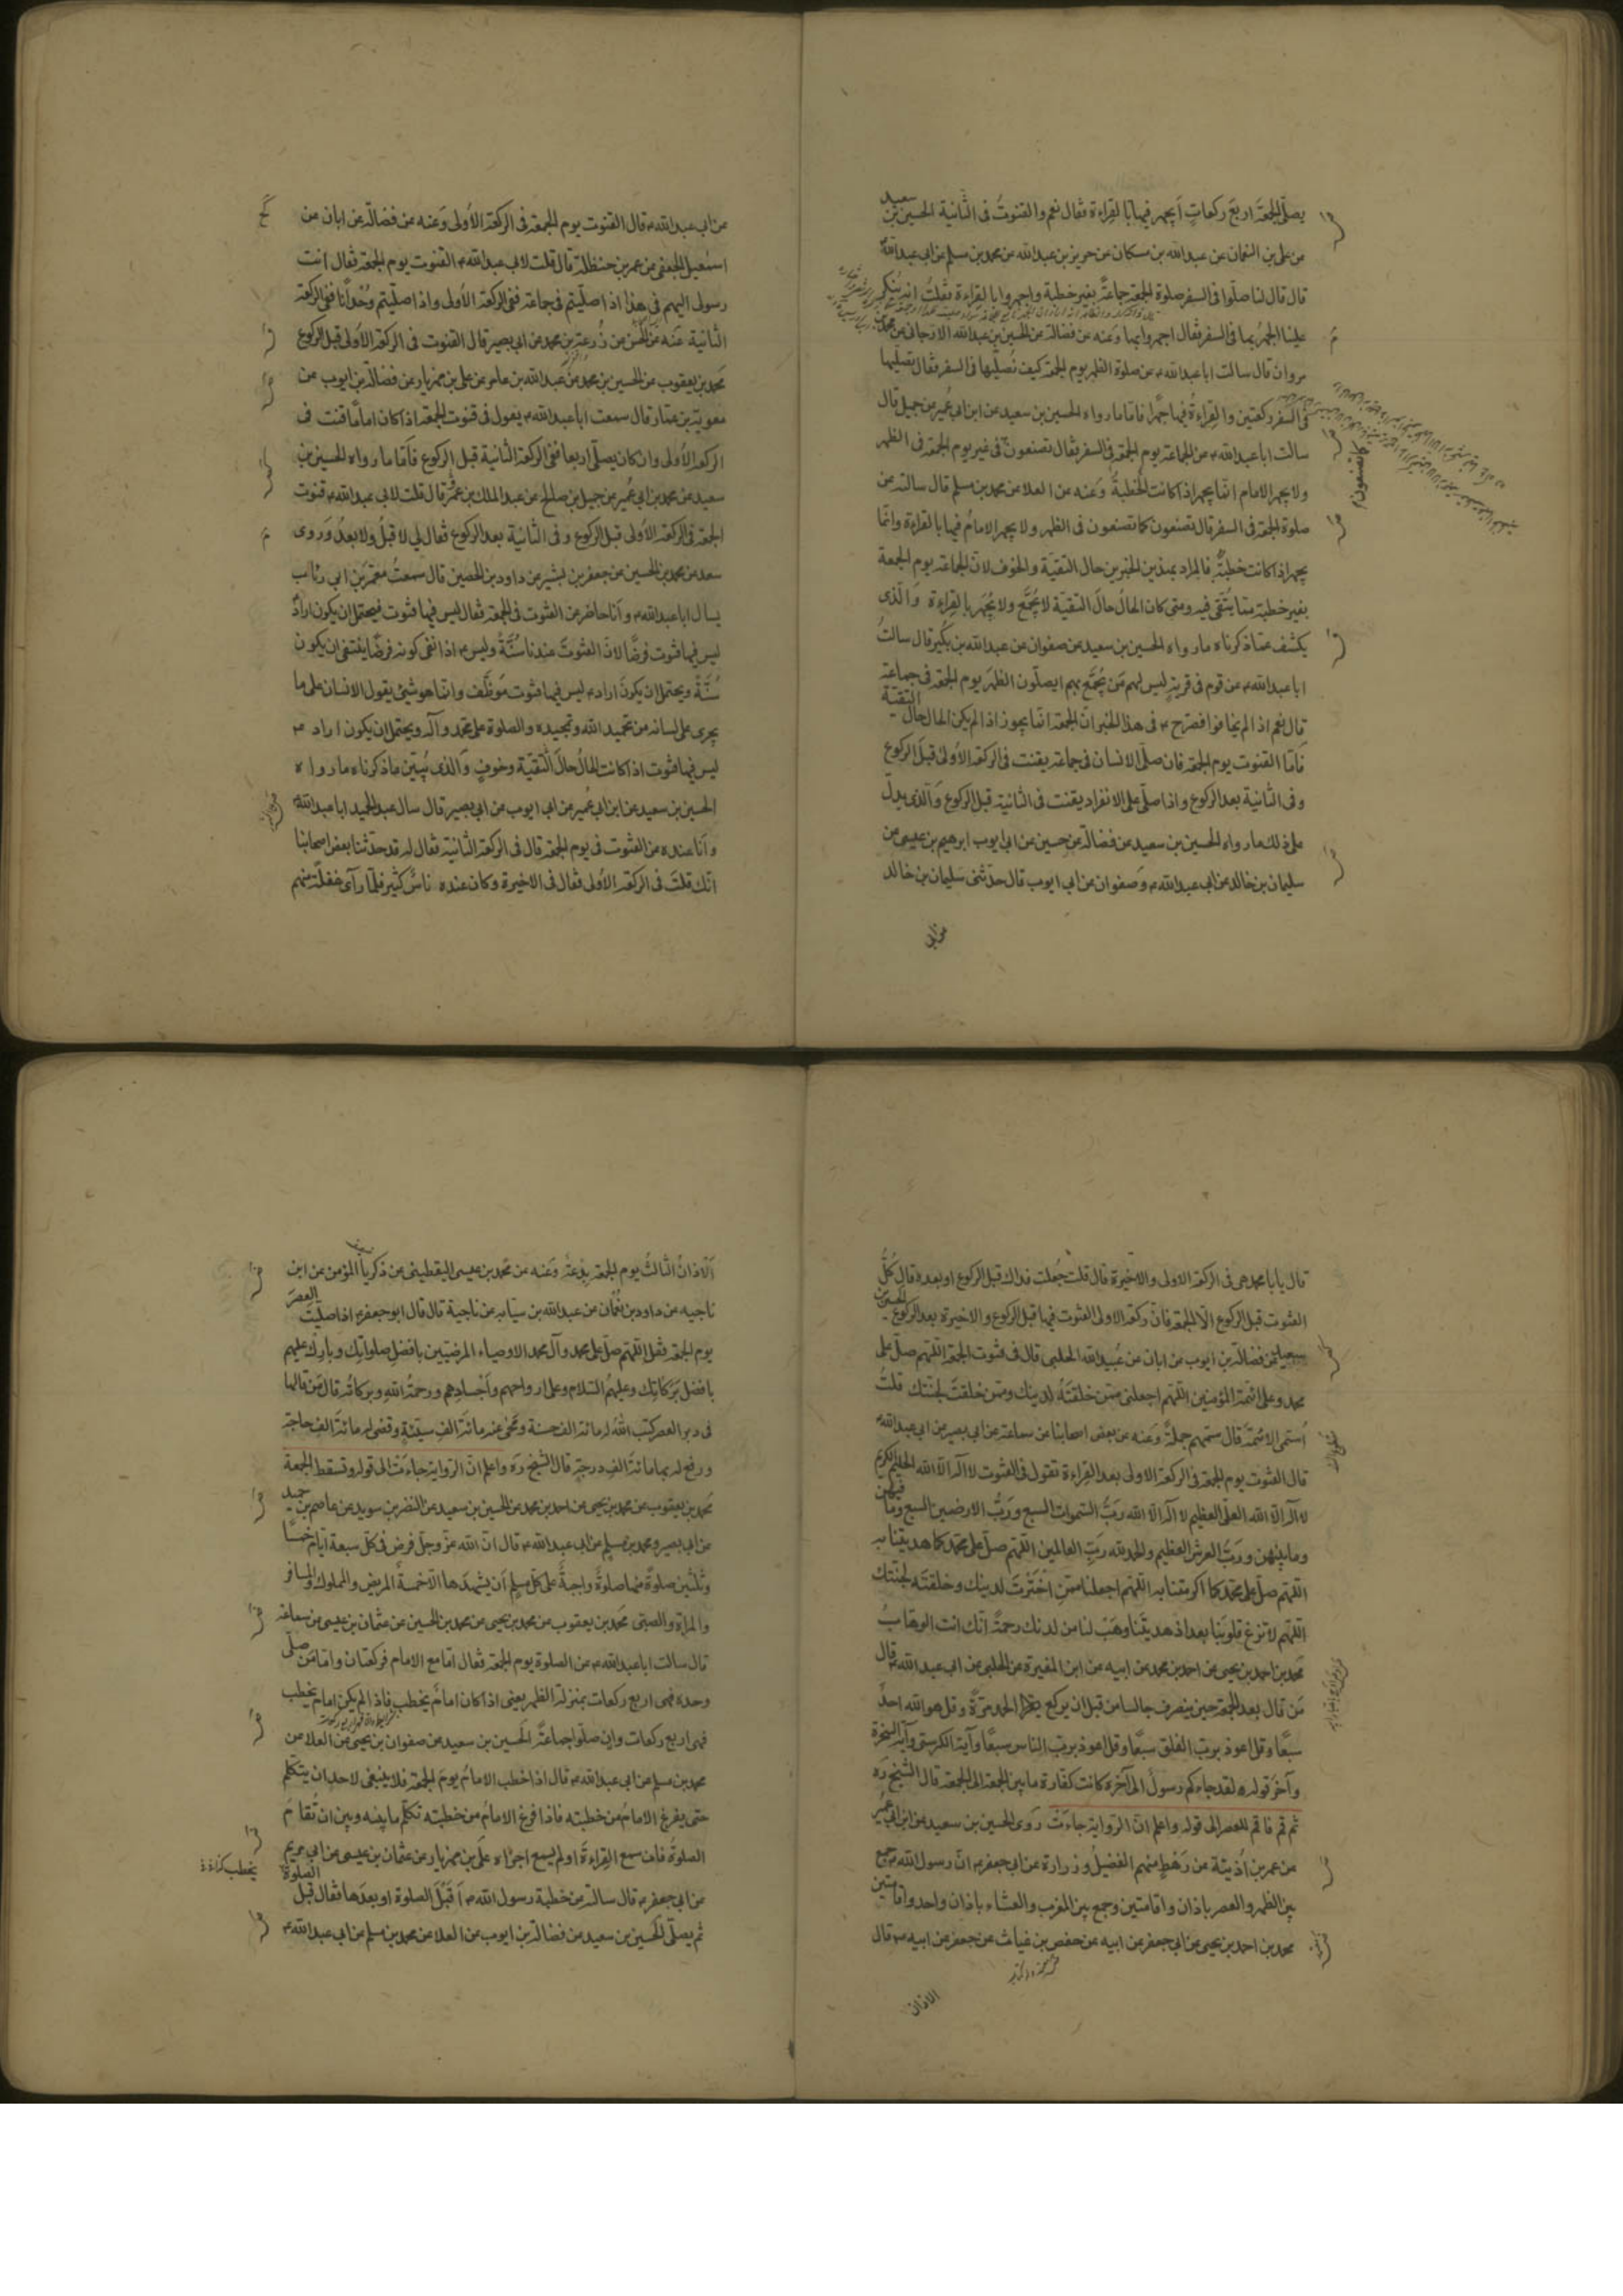 يصلّى الجمعة اربعَ ركعاتٍ أيجهر فيها بالقِراءة فقال نعم والقنوتُ فى الثّانية الحسين بن سعيد
عن على بن النعمان عن عبدالله بن مسكان عن حريز بن عبدالله عن محمد بن مسلم عن ابى عبدالله
قال قال لنا صلّوا فى السفر صلوة الجمعة جماعةً بغير خطبة واجهروا بالقِراءة فقلتُ انه يُنكر
علينا الجهرُ بها فى السفر فقال اجهروا بها وَعنه عن فضالة عن الحسين بن عبدالله الارجانى عن محمد بن
مروان قال سالت اباعبدالله ع عن صلوة الظهر يوم الجمعة كيف نُصلّيها فى السفر فقال تصلّيها
فى السفر ركعتين والقِراءةُ فيها جهرًا فامّا ما رواه الحسين بن سعيد عن ابن ابى عُمير عن جميل قال
سالت اباعبدالله ع عن الجماعة يوم الجمعة فى السفر فقال تصنعون فى غير يوم الجمعة فى الظهر
كما تصنعون
ولا يجهر الامام انّما يجهر اذا كانت الخطبةُ وَعنه عن العلا عن محمد بن مسلم قال سالته عن
صلوة الجمعة فى السفر قال تصنعون كما تصنعون فى الظهر ولا يجهر الامامُ فيها بالقراءة وانّما
يجهر اذا كانت خطبةٌ فالمراد بهذين الخبرين حال التقيّة والخوف لانّ الجماعة يوم الجمعة
بغير خطبة ممّا يُتّقى فيه ومتى كان الحالُ حالَ التقيّة لا يُجمَّع ولا يُجهَر بالقِراءة وَالّذى
يكشف عمّا ذكرناه ما رواه الحسين بن سعيد عن صفوان عن عبدالله بن بُكير قال سالتُ
اباعبدالله ع عن قوم فى قريةٍ ليس لهم مَن يُجمّع بهم ايصلّون الظهرَ يوم الجمعة فى جماعة
قال نعم اذا لم يخافوا فصرّح ع فى هذا الخبر انّ الجمعة انّما يجوز اذا لم يكن الحال حال التقيّة
فَامّا القنوت يوم الجمعة فان صلّى الانسان فى جماعة يقنت فى الركعة الأولى قبلَ الركوع
وفى الثانية بعد الركوع واذا صلّى على الانفراد يقنت فى الثانية قبل الركوع وَالّذى يدلّ
على ذلك ما رواه الحسين بن سعيد عن فضالة عن حسين عن ابى ايوب ابرهيم بن عيسى عن
سليمان بن خالد عن ابى عبدالله ع وَصفوان عن ابى ايوب قال حدّثنى سليمان بن خالد
عن ابى
عن ابى عبدالله ع قال القنوت يوم الجمعة فى الركعة الأولى وَعنه عن فضالة عن ابان عن
اسمعيل الجعفى عن عمر بن حنظلة قال قلت لابى عبدالله ع القنوت يوم الجمعة فقال انت
رسولى اليهم فى هذا اذا صلّيتم فى جماعة ففى الركعة الأولى واذا صلّيتم وُحْدانًا ففى الركعة
الثانية عَنه عن الحسن عن زُرعة بن محمد عن ابى بصير قال القنوت فى الركعة الأولى قبل الركوع
محمد بن يعقوب عن الحسين بن محمد عن عبدالله بن عامر عن على بن مهزيار عن فضالة بن ايوب عن
معوية بن عمّار قال سمعت اباعبدالله ع يقول فى قنوت الجمعة اذا كان امامًا قنت فى
الركعة الأولى وان كان يصلّى اربعا ففى الركعة الثانية قبل الركوع فَامّا ما رواه الحسين بن
سعيد عن محمد بن ابى عُمير عن جميل بن صالح عن عبدالملك بن عمرٍو قال قلت لابى عبدالله ع قنوت
الجمعة فى الركعة الأولى قبل الركوع وفى الثانية بعد الركوع فقال لى لا قبلُ ولا بعدُ وَروى
سعد عن محمد بن الحسين عن جعفر بن بشير عن داود بن الحصين قال سمعتُ معمّر بن ابى رئاب
يسال اباعبدالله ع وأنا حاضر عن القنوت فى الجمعة فقال ليس فيها قنوت فيحتمل ان يكون اراد
ليس فيها قنوت فرضًا لانّ القنوتَ عندنا سُنَّةٌ وليس ع اذا نفى كونه فرضًا ينتفى ان يكون
سُنَّةً ويحتمل ان يكونَ اراد ع ليس فيها قنوت موَظَّف وانّما هو شىءٌ يقول الانسان على ما
يجرى على لسانه من تحميد الله وتمجيده والصلوة على محمّد وآله ويحتمل ان يكون اراد ع
ليس فيها قنوت اذا كانت الحالُ حالَ التّقيّة وخوفٍ وَالّذى يُبيّن ما ذكرناه ما رواه
الحسين بن سعيد عن ابن ابى عُمير عن ابى ايوب عن ابى بصير قال سال عبدالحميد اباعبدالله ع
وأنا عنده عن القنوت فى يوم الجمعة قال فى الركعة الثانية فقال له قد حدّثنا بعض اصحابنا
انّك قلتَ فى الركعة الأولى فقال فى الاخيرة وكان عنده ناسٌ كثير فلمّا رآى غفلةً منهم
قال يا بامحمد هى فى الركعة الاولى والاخيرة قال قلت جُعلت فداك قبل الركوع او بعده قال كُلُّ
القنوت قبل الركوع الّا الجمعة فانّ ركعة الاولى القنوت فيها قبل الركوع والاخيرة بعد الركوع الحسين بن
سعيد عن فضالة بن ايوب عن ابان عن عُبيدالله الحلبى قال فى قنوت الجمعة اللّهم صلّ على
محمد وعلى ائمّة المؤمنين اللّهمّ اجعلنى ممّن خلقتَهُ لدينك وممّن خلقتَ لجنّتك قلتُ
أُسمّى الائمّة قال سمّهم جملةً وَعنه عن بعض اصحابنا عن سماعة عن ابى بصير عن ابى عبدالله ع
قال القنوت يوم الجمعة فى الركعة الاولى بعد القراءة تقول فى القنوت لا اله الّا الله الحليم الكريم
لا اله الّا الله العلىّ العظيم لا اله الّا الله رَبُّ السّموات السبع ورَبُّ الارضين السبع وما فيهنّ
وما بينهن ورَبّ العرش العظيم والحمد لله ربّ العالمين اللّهمّ صلّ على محمّد كما هديتنا به
اللّهمّ صلّ على محمّد كما اكرمتنا به اللّهمّ اجعلنا ممّن اخْتَرْتَ لدينك وخلقته لجنّتك
اللّهمّ لا تزغ قلوبَنا بعد اذ هديتَنا وهَبْ لنا من لدنك رحمةً انّك انت الوهّاب
محمد بن احمد بن يحيى عن احمد بن محمد عن ابيه عن ابن المغيرة عن الحلبى عن ابى عبدالله ع قال
مَن قال بعد الجمعة حين ينصرف جالسا من قبل ان يركع يقرأ الحمد مرّةً وقل هو الله احدٌ
سبعًا وقل اعوذ برب الفلق سبعًا وقل اعوذ بربّ الناس سبعًا وآية الكرسى وآية السُّخرة
وآخر قوله ع لقد جاءكم رسولٌ الى آخرها كانت كفّارة ما بين الجمعة الى الجمعة قال الشيخ ره
ثم قم فاقم للعصر الى قوله واعلم انّ الرّواية جاءت رَوى الحسين بن سعيد عن ابن ابى عُمير
عن عمر بن أُذينة عن رَهْطٍ منهم الفضيل وزرارة عن ابى جعفر ع انّ رسول الله جمع
بين الظهر والعصر باذان واقامتين وجمع بين المغرب والعشاء باذان واحد واقامتين
محمد بن احمد بن يحيى عن ابى جعفر عن ابيه عن حفص بن غياث عن جعفر عن ابيه ع قال
الاذان
الاذانُ الثّالثُ يوم الجمعة بِدْعةٌ وَعنه عن محمد بن عيسى اليقطينى عن زكريا المؤمن عن ابن
ناجيه عن داود بن النعمان عن عبدالله بن سيابه عن ناجية قال قال ابوجعفر ع اذا صلّيتَ العصرَ
يوم الجمعة فقل اللّهمّ صلّ على محمد وآل محمد الاوصياء المرضيّين بافضل صلواتِك وبارك عليهم
بافضل بَرَكاتِك وعليهمُ السّلام وعلى ارواحهم وأجْسادِهم ورحمةُ اللهِ وبركاتُه قال مَن قالها
فى دبر العصر كتب اللهُ له مائة الف حسنة ومَحى عنه مائةَ الفِ سيّئةٍ وقضى له مائةَ الف حاجة
ورفع له بها مائةَ الفِ درجةٍ قال الشيخ ره واعلم انّ الرّواية جاءت الى قوله وتسقط الجمعة
محمد بن يعقوب عن محمد بن يحيى عن احمد بن محمد عن الحسين بن سعيد عن النّضر بن سويد عن عاصم بن حميد
عن ابى بصير ومحمد بن مسلم عن ابى عبدالله ع قال انّ الله عزّ وجلّ فرض فى كلّ سبعة ايّام خمسًا
وثلثين صلوةً منها صلوةٌ واجبةٌ على كلّ مسلم أن يشهدَها الّا خمسة المريض والمملوك والمسافر
والمراة والصبى محمد بن يعقوب عن محمد بن يحيى عن محمد بن الحسين عن عثمان بن عيسى عن سماعة
قال سالت اباعبدالله ع عن الصلوة يوم الجمعة فقال امّا مع الامام فركعتان وامّا مَن صلّى
وحده فهى اربع ركعات بمنزلة الظهر يعنى اذا كان امامٌ يخطب فاذا لم يكن امام يخطب
فهى اربع ركعات وان صلّوا جماعةً الحسين بن سعيد عن صفوان بن يحيى عن العلا عن
محمد بن مسلم عن ابى عبدالله ع قال اذا خطب الامامُ يومَ الجمعة فلا ينبغى لاحد ان يتكلّم
حتى يفرغ الامامُ من خطبته فاذا فرغ الامامُ من خطبته تكلّم ما بينه وبين ان تُقامَ
الصلوةُ فان سمع القِراءةَ او لم يسمع اجزاه علىّ بن مهزيار عن عثمان بن عيسى عن ابى مريم
عن ابى جعفر ع قال سالته عن خطبة رسول الله ع أقبْلَ الصلوة او بعدَها فقال قبل الصلوة
ثم يصلّى الحسين بن سعيد عن فضالة بن ايوب عن العلا عن محمد بن مسلم عن ابى عبدالله ع